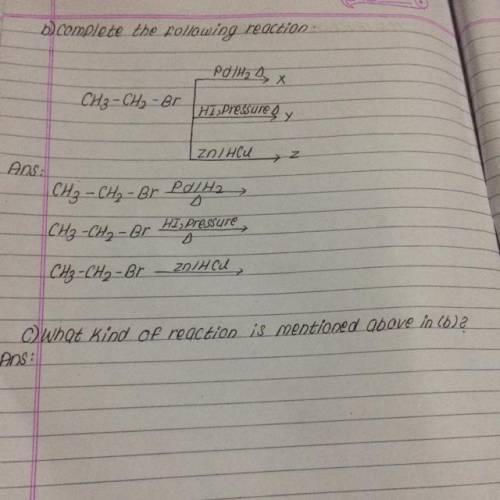 b) Complete the following reaction:
Pd/H2 Δ X
CH3-CH2-Br HI, Pressure Δ Y
Zn/HCl Z
Ans:
CH3-CH2-Br Pd/H2 Δ
CH3-CH2-Br HI, Pressure Δ
CH3-CH2-Br Zn/HCl
c) What kind of reaction is mentioned above in (b)?
Ans: